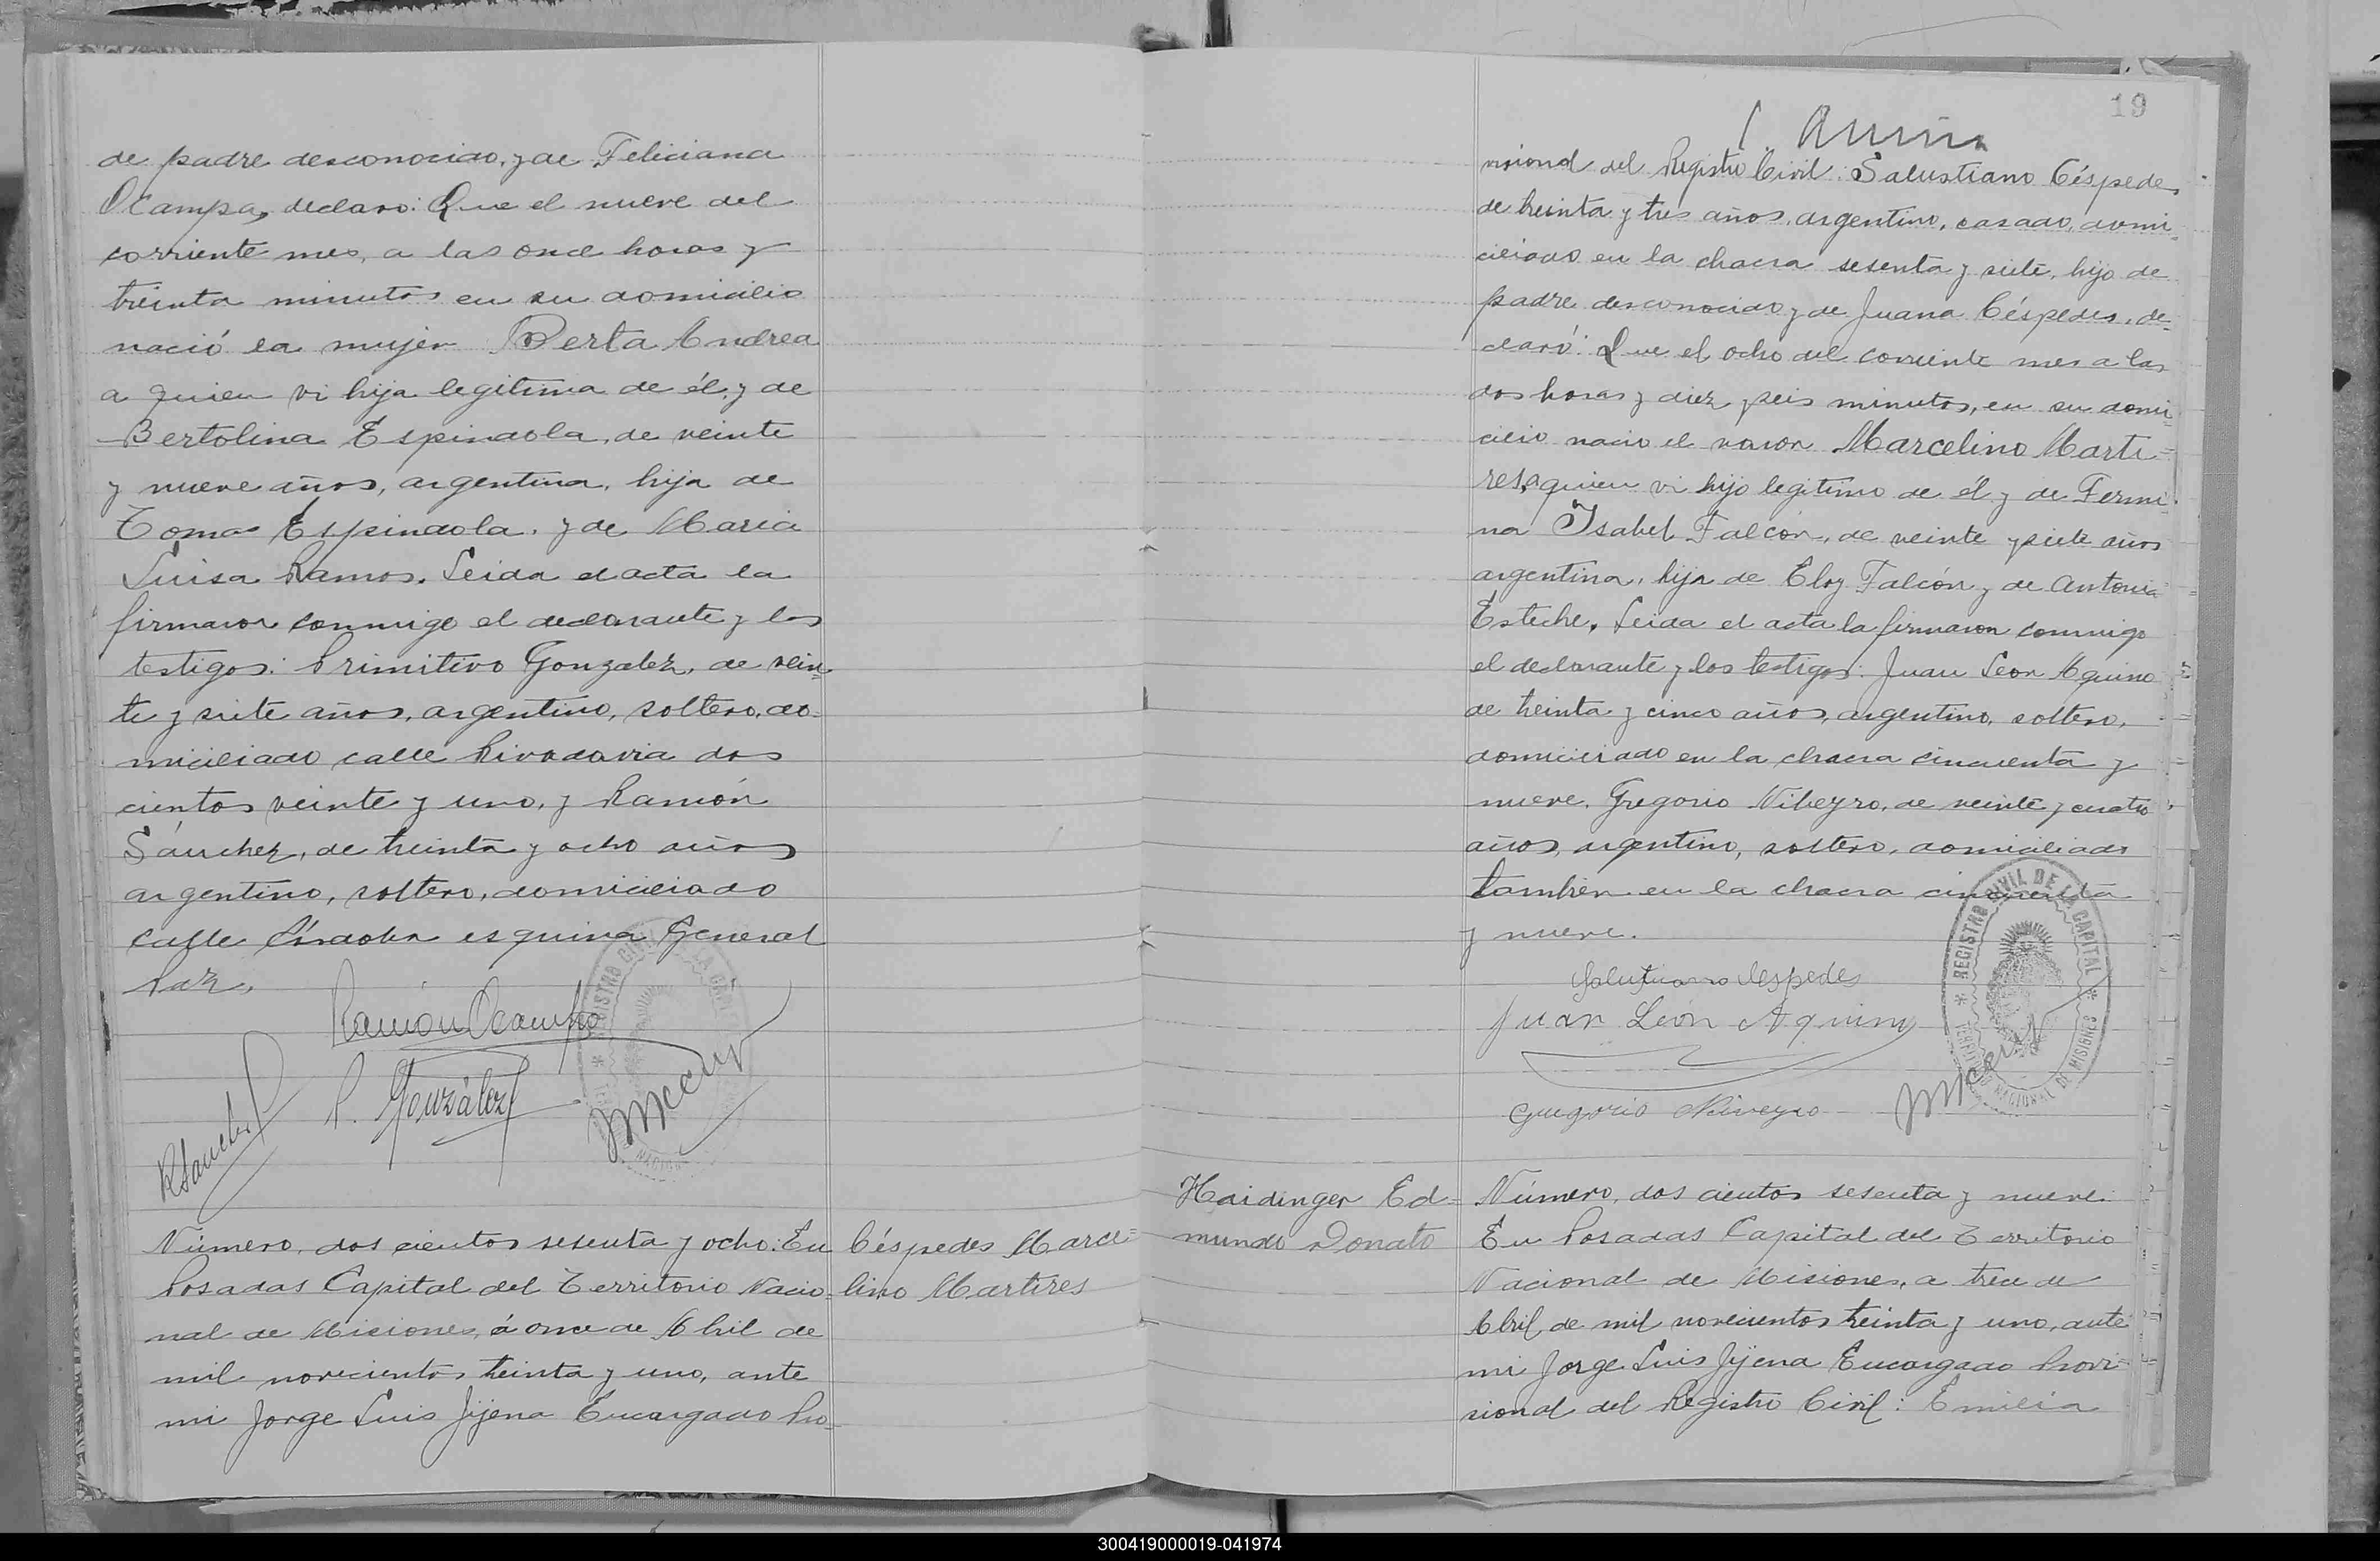 de padre desconocido, y de Feliciana
Ocampo, declaro: Que el nueve del
corriente mes, a las once horas y
treinta minutos en su domicilio
nació la mujer Berta Andrea
a quien vi hija legitima de él, y de
Bertolina Espindola, de veinte
y nueve años, argentina, hija de
Tomas Espindola, y de Maria
Luisa Ramos. Leida el acta la
firmaron conmigo el declarante y los
testigos: Primitivo Gonzalez, de vein=
te y siete años, argentino, soltero, do=
miciliado calle Rivadavia dos
cientos veinte y uno, y Ramón
Sánchez, de treinta y ocho años
argentino, soltero, domiciliado
calle Córdoba esquina General
Paz.
Ramón Ocampo
P. González
RSanchez
Número, dos cientos sesenta y ocho: En
Posadas Capital del Territorio Nacio=
nal de Misiones, á once de Abril de
mil novecientos treinta y uno, ante
mi Jorge Luis Jijena Encargado Pro=
Céspedes Marce=
lino Martires
19
visional del Registro Civil: Salustiano Céspedes,
de treinta y tres años, argentino, casado, domi=
ciliado en la chacra sesenta y siete, hijo de
padre desconocido y de Juana Céspedes, de=
claró: Que el ocho del corriente mes a las
dos horas y diez y seis minutos, en su domi=
cilio nacio el varon Marcelino Marti=
res, a quien vi hijo legitimo de él y de Fermi=
na Isabel Falcón, de veinte y siete años
argentina, hija de Eloy Falcón y de Antonia
Esteche. Leida el acta la firmaron conmigo
el declarante y los testigos: Juan Leon Aquino
de treinta y cinco años, argentino, soltero,
domiciliado en la chacra cincuenta y
nueve, Gregorio Nibeyro, de veinte y cuatro
años, argentino, soltero, domiciliado
tambien en la chacra cincuenta
y nueve.
Salustiano Cespedes
Juan León Aquino
Gregorio Niveyro
REGISTRO CIVIL DE LA CAPITAL
TERRITORIO NACIONAL DE MISIONES
Haidinger Ed=
mundo Donato
Número, dos cientos sesenta y nueve.
En Posadas Capital del Territorio
Nacional de Misiones, a trece de
Abril de mil novecientos treinta y uno, ante
mi Jorge Luis Jijena Encargado Provi=
sional del Registro Civil: Emilia
300419000019-041974